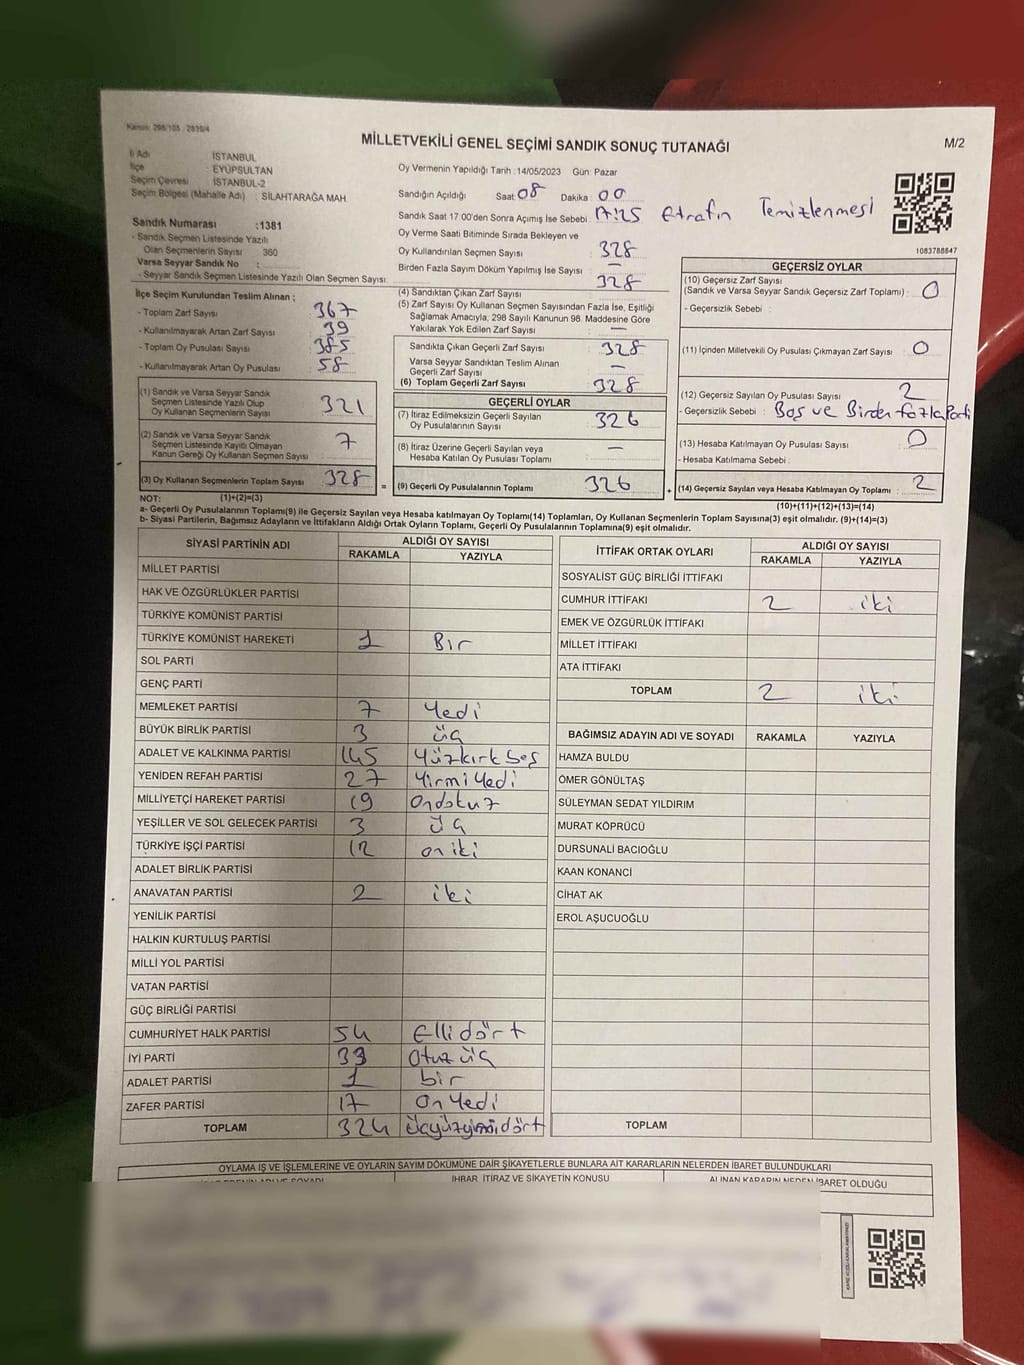 Kanun: 298/105 , 2839/4
MİLLETVEKİLİ GENEL SEÇİMİ SANDIK SONUÇ TUTANAĞI
M/2
İl Adı İSTANBUL
İlçe : EYÜPSULTAN
Seçim Çevresi İSTANBUL-2
Seçim Bölgesi (Mahalle Adı) : SİLAHTARAĞA MAH.
Oy Vermenin Yapıldığı Tarih : 14/05/2023 Gün: Pazar
Sandığın Açıldığı Saat 08 Dakika : 00
Sandık Saat 17.00'den Sonra Açımış İse Sebebi : Etrafın Temizlenmesi
1083788847
Sandık Numarası :1381
- Sandık Seçmen Listesinde Yazılı
Olan Seçmenlerin Sayısı 360
Varsa Seyyar Sandık No :
- Seyyar Sandık Seçmen Listesinde Yazılı Olan Seçmen Sayısı:
Oy Verme Saati Bitiminde Sırada Bekleyen ve
Oy Kullandırılan Seçmen Sayısı 328
Birden Fazla Sayım Döküm Yapılmış İse Sayısı —
İlçe Seçim Kurulundan Teslim Alınan ;
- Toplam Zarf Sayısı : 367
- Kullanılmayarak Artan Zarf Sayısı : 39
- Toplam Oy Pusulası Sayısı : 385
- Kullanılmayarak Artan Oy Pusulası : 58
(1) Sandık ve Varsa Seyyar Sandık
Seçmen Listesinde Yazılı Olup
Oy Kullanan Seçmenlerin Sayısı 321
(2) Sandık ve Varsa Seyyar Sandık
Seçmen Listesinde Kayıtlı Olmayan
Kanun Gereği Oy Kullanan Seçmen Sayısı : 7
(3) Oy Kullanan Seçmenlerin Toplam Sayısı 328
(4) Sandıktan Çıkan Zarf Sayısı 328
(5) Zarf Sayısı Oy Kullanan Seçmen Sayısından Fazla İse, Eşitliği
Sağlamak Amacıyla; 298 Sayılı Kanunun 98. Maddesine Göre
Yakılarak Yok Edilen Zarf Sayısı : —
Sandıkta Çıkan Geçerli Zarf Sayısı 328
Varsa Seyyar Sandıktan Teslim Alınan
Geçerli Zarf Sayısı —
(6) Toplam Geçerli Zarf Sayısı 328
GEÇERLİ OYLAR
(7) İtiraz Edilmeksizin Geçerli Sayılan
Oy Pusulalarının Sayısı 326
(8) İtiraz Üzerine Geçerli Sayılan veya
Hesaba Katılan Oy Pusulası Toplamı —
= (9) Geçerli Oy Pusulalarının Toplamı 326
GEÇERSİZ OYLAR
(10) Geçersiz Zarf Sayısı
(Sandık ve Varsa Seyyar Sandık Geçersiz Zarf Toplamı) : 0
- Geçersizlik Sebebi :
(11) İçinden Milletvekili Oy Pusulası Çıkmayan Zarf Sayısı : 0
(12) Geçersiz Sayılan Oy Pusulası Sayısı : 2
- Geçersizlik Sebebi : Boş ve Birden fazla Parti
(13) Hesaba Katılmayan Oy Pusulası Sayısı : 0
- Hesaba Katılmama Sebebi :
+ (14) Geçersiz Sayılan veya Hesaba Katılmayan Oy Toplamı : 2
NOT: (1)+(2)=(3) (10)+(11)+(12)+(13)=(14)
a- Geçerli Oy Pusulalarının Toplamı(9) ile Geçersiz Sayılan veya Hesaba katılmayan Oy Toplamı(14) Toplamları, Oy Kullanan Seçmenlerin Toplam Sayısına(3) eşit olmalıdır. (9)+(14)=(3)
b- Siyasi Partilerin, Bağımsız Adayların ve İttifakların Aldığı Ortak Oyların Toplamı, Geçerli Oy Pusulalarının Toplamına(9) eşit olmalıdır.
SİYASİ PARTİNİN ADI ALDIĞI OY SAYISI
RAKAMLA YAZIYLA
MİLLET PARTİSİ
HAK VE ÖZGÜRLÜKLER PARTİSİ
TÜRKİYE KOMÜNİST PARTİSİ
TÜRKİYE KOMÜNİST HAREKETİ 1 Bir
SOL PARTİ
GENÇ PARTİ
MEMLEKET PARTİSİ 7 Yedi
BÜYÜK BİRLİK PARTİSİ 3 üç
ADALET VE KALKINMA PARTİSİ 145 Yüzkırk beş
YENİDEN REFAH PARTİSİ 27 Yirmi Yedi
MİLLİYETÇİ HAREKET PARTİSİ 19 Ondokuz
YEŞİLLER VE SOL GELECEK PARTİSİ 3 üç
TÜRKİYE İŞÇİ PARTİSİ 12 on iki
ADALET BİRLİK PARTİSİ
ANAVATAN PARTİSİ 2 iki
YENİLİK PARTİSİ
HALKIN KURTULUŞ PARTİSİ
MİLLİ YOL PARTİSİ
VATAN PARTİSİ
GÜÇ BİRLİĞİ PARTİSİ
CUMHURİYET HALK PARTİSİ 54 Elli dört
İYİ PARTİ 33 Otuz üç
ADALET PARTİSİ 1 bir
ZAFER PARTİSİ 17 On Yedi
TOPLAM 324 Üçyüzyirmi dört
İTTİFAK ORTAK OYLARI ALDIĞI OY SAYISI
RAKAMLA YAZIYLA
SOSYALİST GÜÇ BİRLİĞİ İTTİFAKI
CUMHUR İTTİFAKI 2 iki
EMEK VE ÖZGÜRLÜK İTTİFAKI
MİLLET İTTİFAKI
ATA İTTİFAKI
TOPLAM 2 iki
BAĞIMSIZ ADAYIN ADI VE SOYADI RAKAMLA YAZIYLA
HAMZA BULDU
ÖMER GÖNÜLTAŞ
SÜLEYMAN SEDAT YILDIRIM
MURAT KÖPRÜCÜ
DURSUNALİ BACIOĞLU
KAAN KONANCİ
CİHAT AK
EROL AŞUCUOĞLU
TOPLAM
OYLAMA İŞ VE İŞLEMLERİNE VE OYLARIN SAYIM DÖKÜMÜNE DAİR ŞİKAYETLERLE BUNLARA AİT KARARLARIN NELERDEN İBARET BULUNDUKLARI
İHBAR, İTİRAZ VE ŞİKAYETİN KONUSU ALINAN KARARIN NEDEN İBARET OLDUĞU